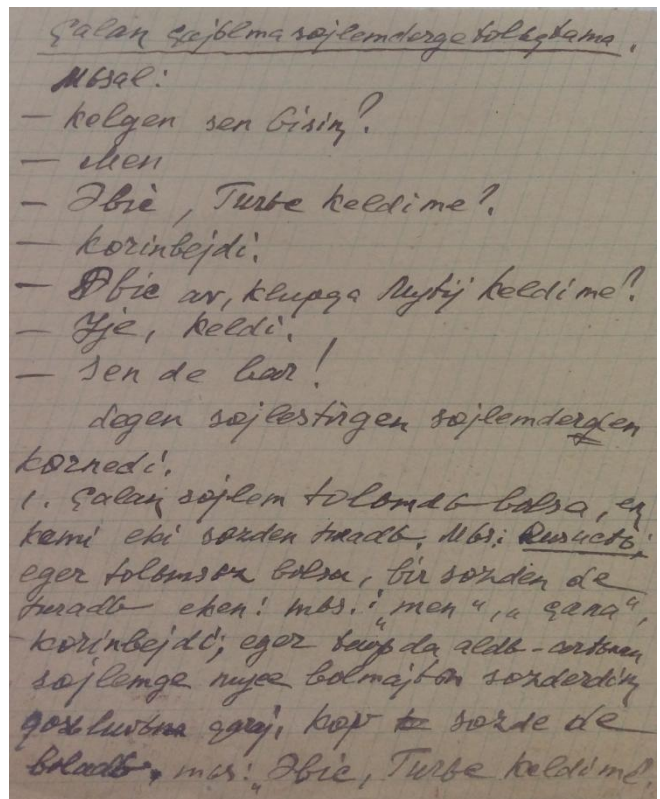 Çalaŋ çajьlma søjlemderge toluqtama.
Mьsal:
— kelgen sen bisiŋ?
— Men
— Əbic, Turbe keldime?
— korinbejdi.
— Əbic av, klupqa keldime?
— Ije, keldi.
— Sen de bar!
degen søjlestirgen søjlemderden
kørnedi.
1. Çalaŋ søjlem tolomdь bolsa, eŋ
kemi eki søzden turadь. Mьs:
eger tolomsьz bolsa, bir søzden de
turadь eken: mьs: „men“, „çana“,
korinbejdi; eger da aldь-artьnan
søjlemge myce bolmajtьn søzderdiŋ
qosьluvьna qaraj, køp søzde de
boladь, mьs: „Əbic, Turbe keldime?